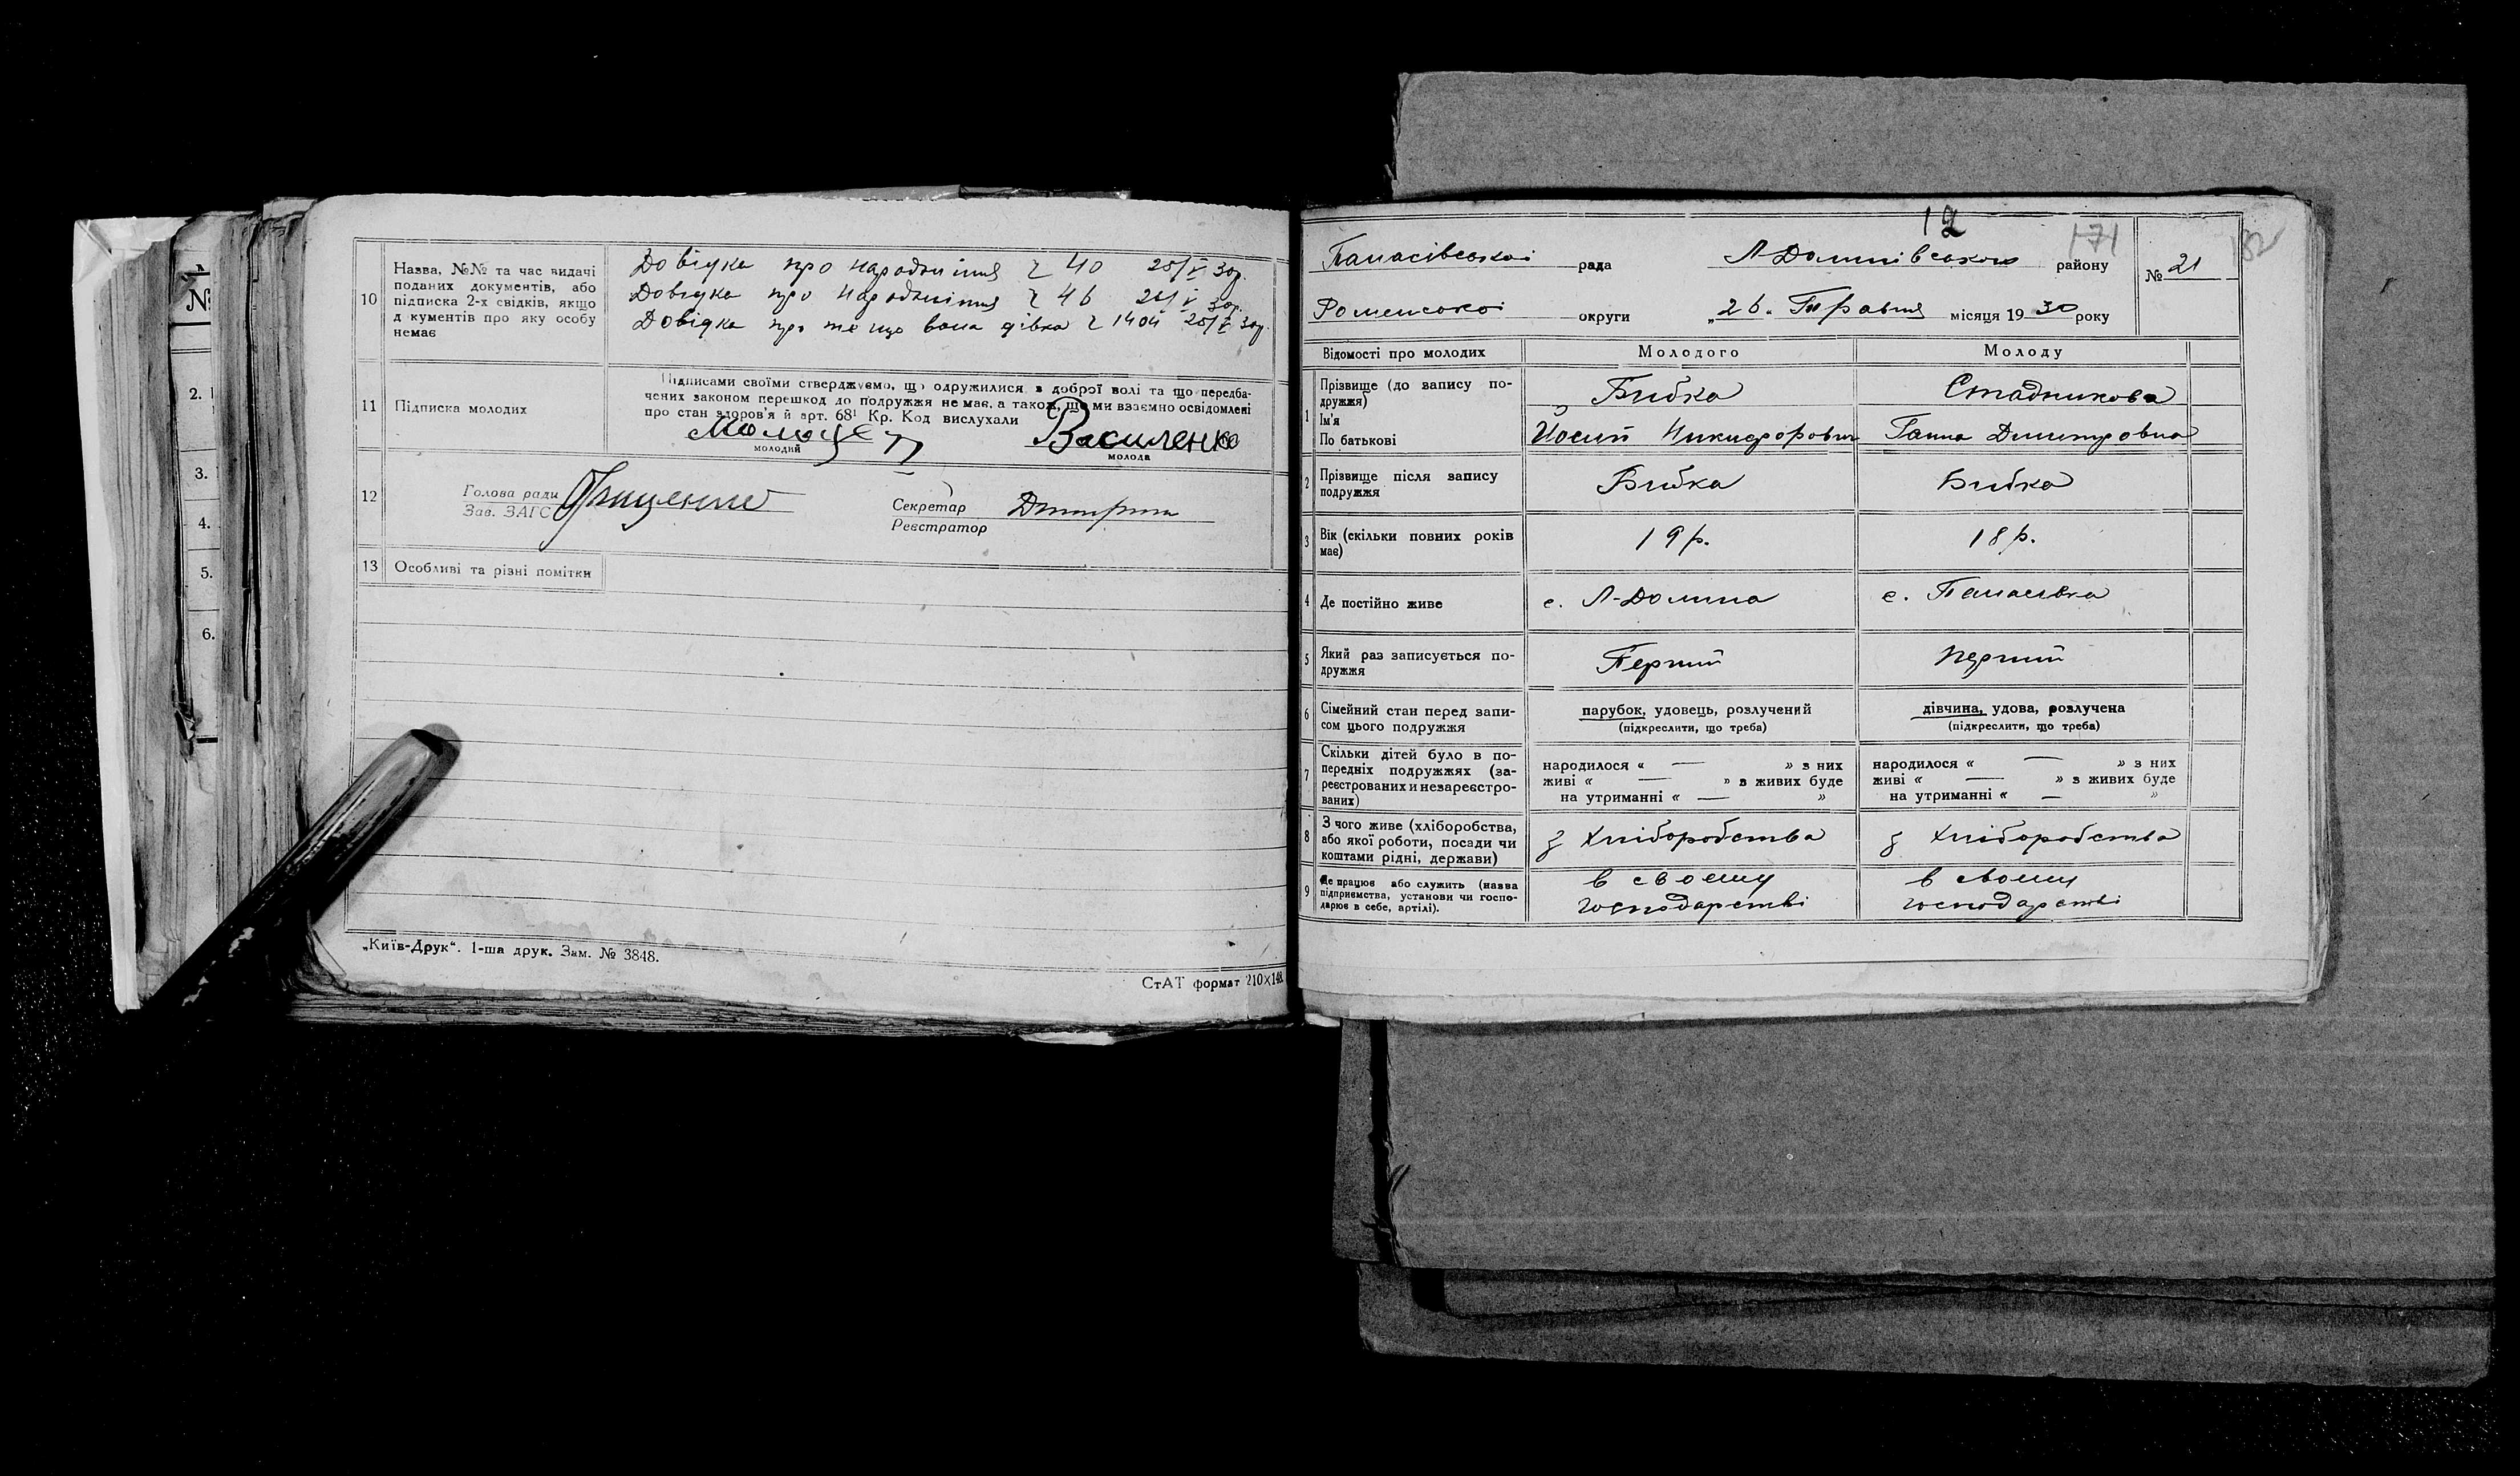 №
2.
3.
4.
5.
6.
10 Назва, №№ та час видачі
поданих документів, або
підписка 2-х свідків, якщо
д кументів про яку особу
немає
Довідка про народження 40 30р.
Довідка про народження 46 30р.
Довідка про те що вона дівка 1404 30р.
11 Підписка молодих
Підписами своїми стверджуємо, що одружилися з доброї волі та що передба-
чених законом перешкод до подружжя немає, а також, що ми взаємно освідомлені
про стан здоров'я й арт. 68¹ Кр. Код вислухали
Василенко
молодий молода
12 Голова ради Секретар
Зав. ЗАГС Реєстратор
13 Особливі та різні помітки
„Київ-Друк“. 1-ша друк. Зам. № 3848.
СтАТ формат 210×148
12
171
182
Панасівської рада Л-Долинівського району № 21
Роменської округи „26“ Травня місяця 1930 року
Відомості про молодих Молодого Молоду
1 Прізвище (до запису по-
дружжя) Бибка Стадникова
Ім'я
По батькові Йосип Никифорович Ганна Дмитровна
2 Прізвище після запису
подружжя Бибка Бибка
3 Вік (скільки повних років
має) 19 р. 18 р.
4 Де постійно живе с. Л-Долина с. Панасівка
5 Який раз записується по-
дружжя Перший Перший
6 Сімейний стан перед запи-
сом цього подружжя
парубок, удовець, розлучений дівчина, удова, розлучена
(підкреслити, що треба) (підкреслити, що треба)
7 Скільки дітей було в по-
передніх подружжях (за-
реєстрованих и незареєстро-
ваних)
народилося « — » з них народилося « — » з них
живі « — » з живих буде живі « — » з живих буде
на утриманні « — » на утриманні « — »
8 З чого живе (хліборобства,
або якої роботи, посади чи
коштами рідні, держави)
з Хліборобства з Хліборобства
9 Де працює або служить (назва
підприємства, установи чи госпо-
дарює в себе, артілі).
в своєму в своєму
господарстві господарстві